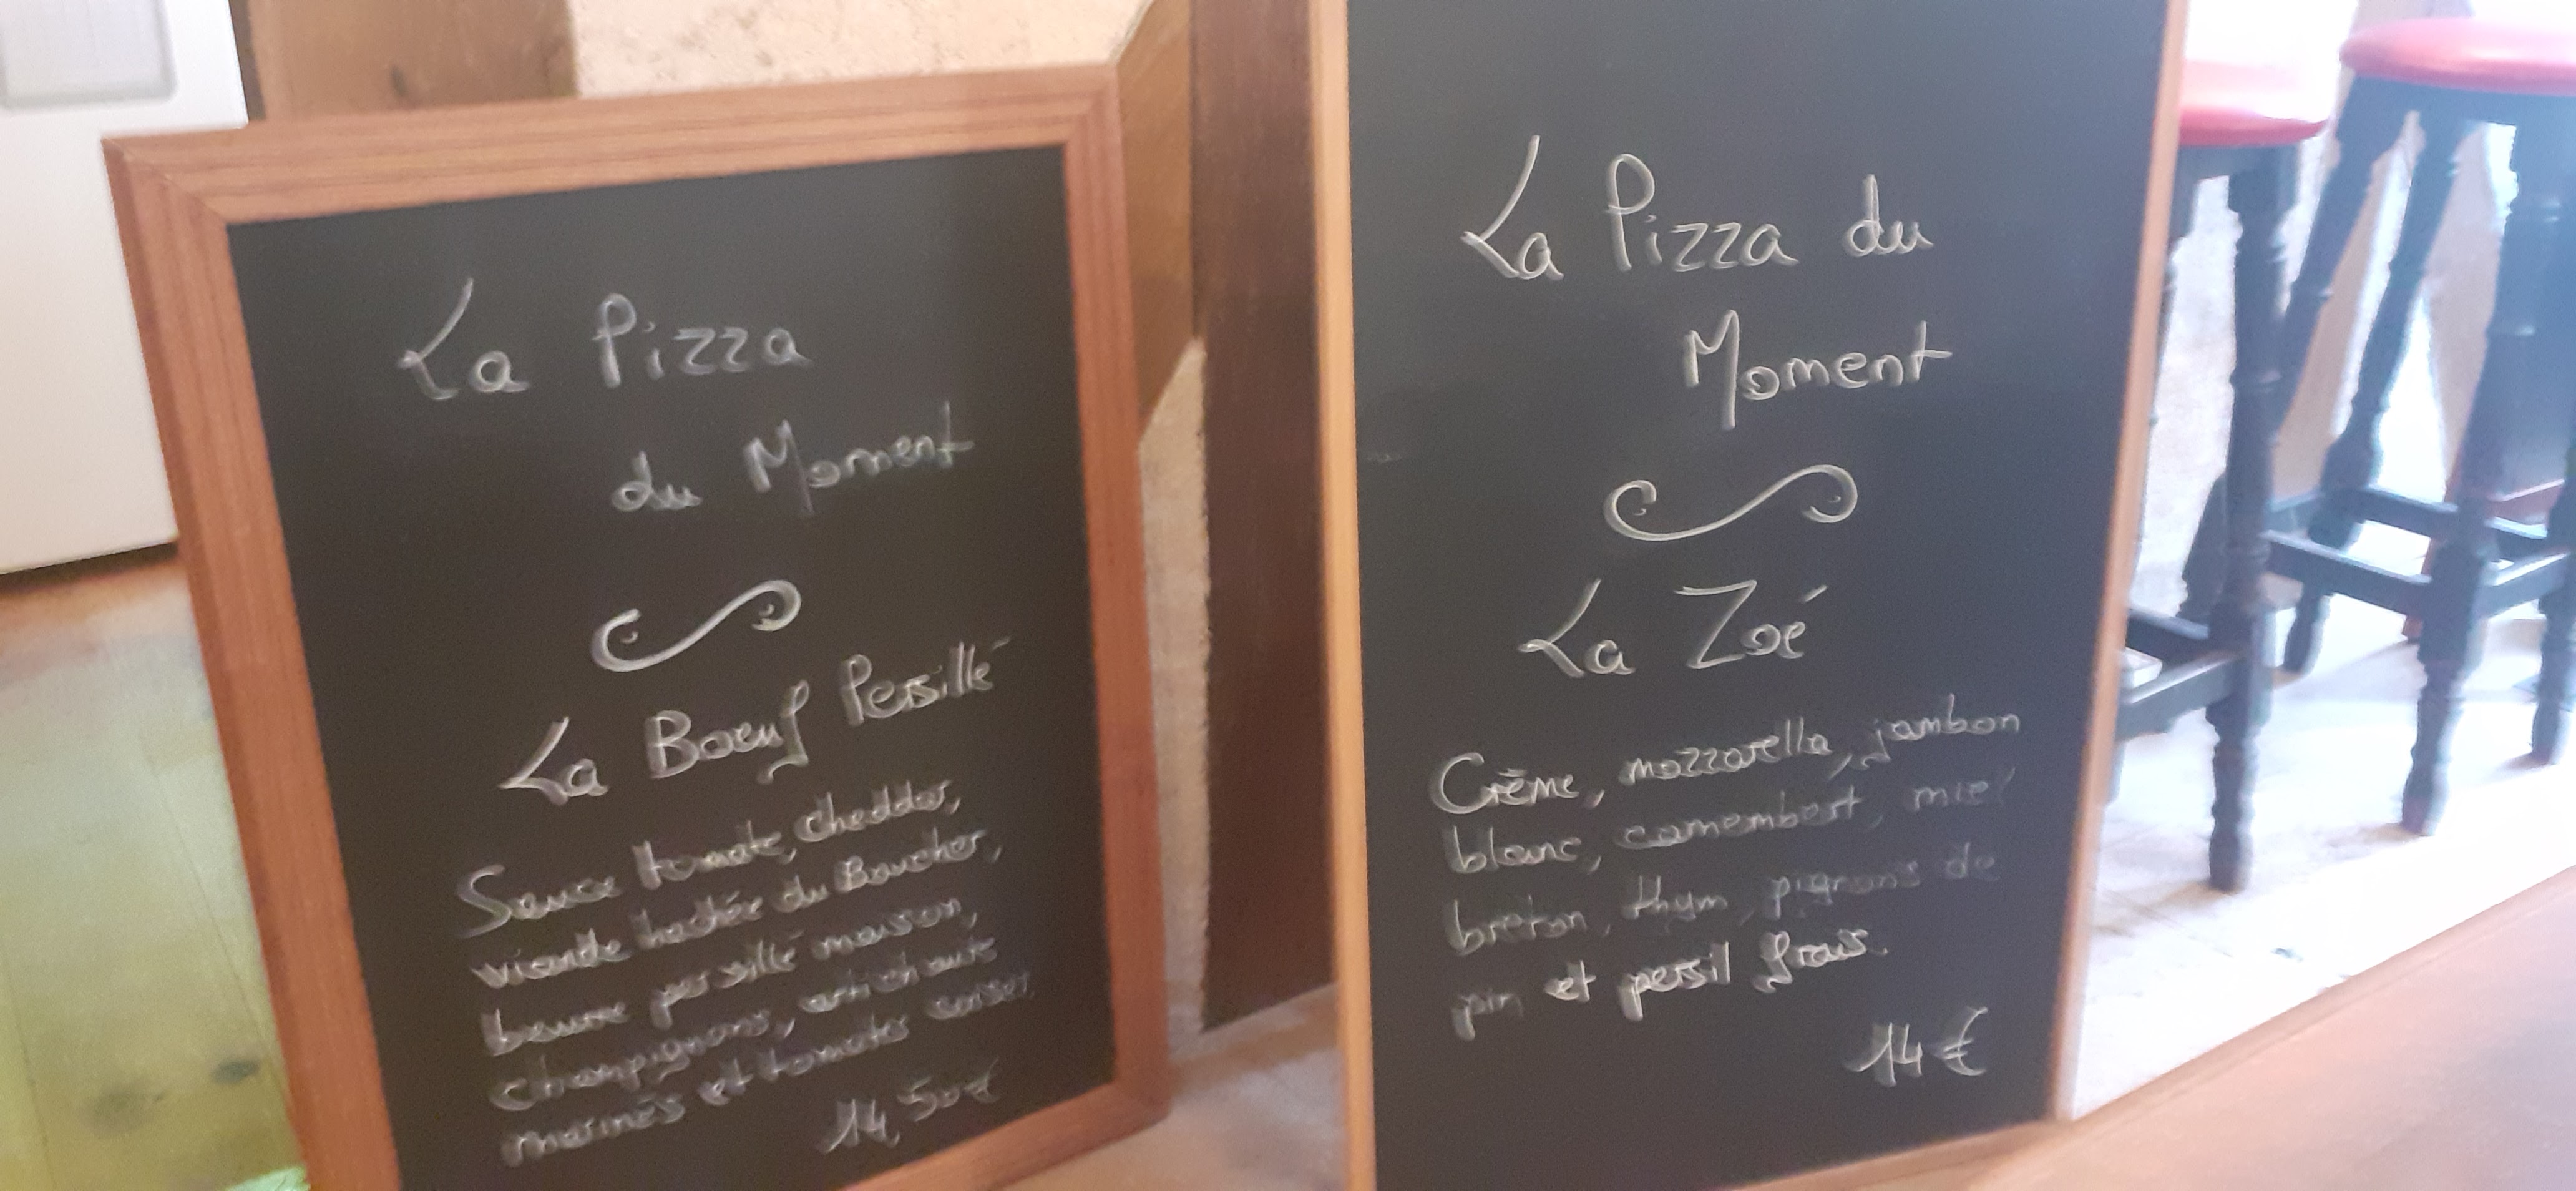 La Pizza
du Moment
La Bœuf Persillé
Sauce tomate, cheddar,
viande hachée du Boucher,
beurre persillé maison,
champignons, artichauts
marinés et tomates cerises.
14,50€
La Pizza du
Moment
La Zoé
Crème, mozzarella, jambon
blanc, camembert, miel
breton, thym, pignons de
pin et persil frais.
14€